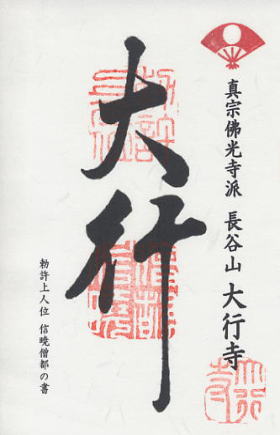 真宗佛光寺派 長谷山 大行寺
大行
勅許上人位 信暁僧都の書